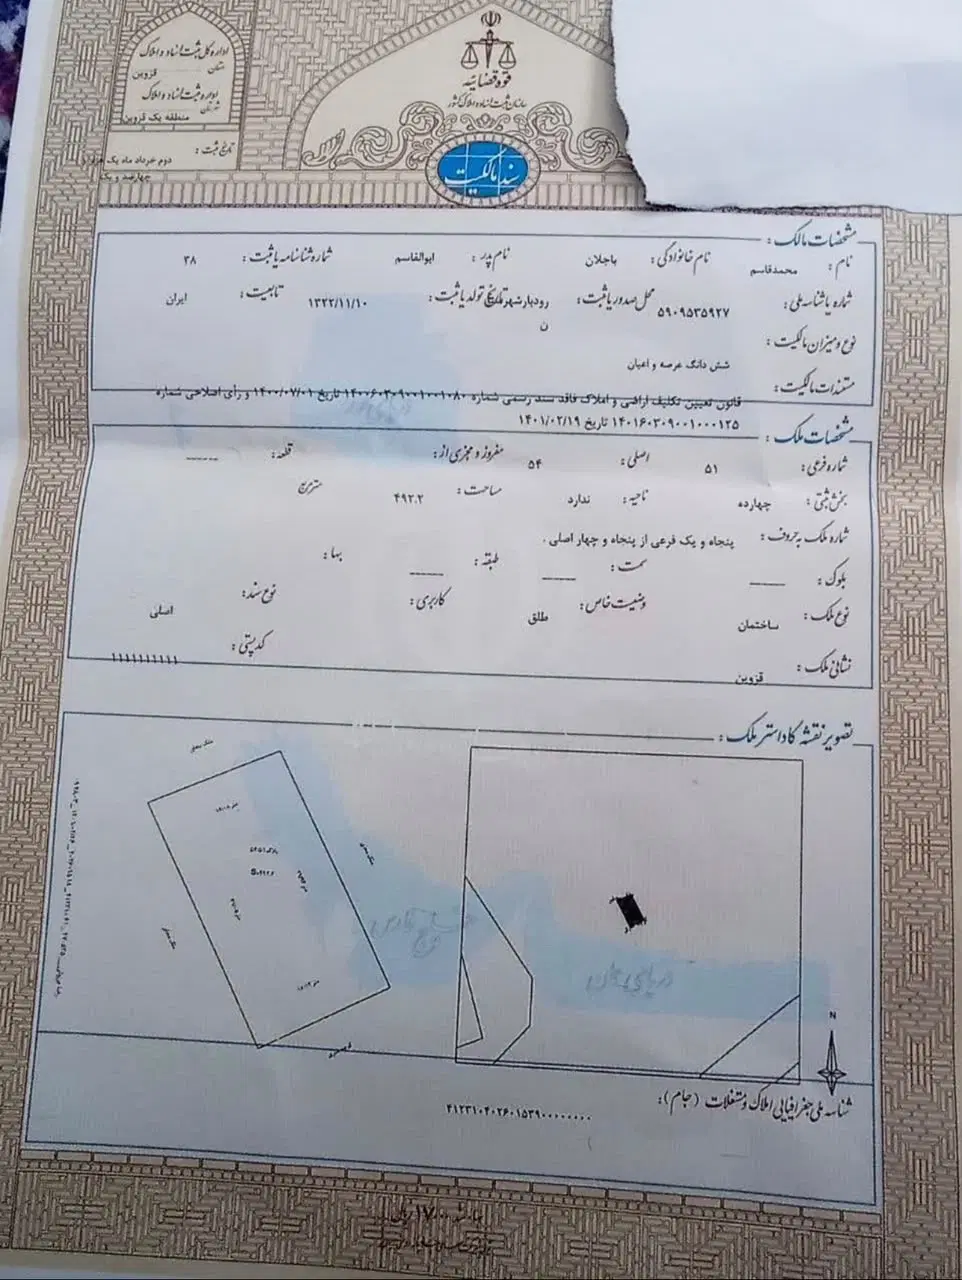 قوه قضائیه
سازمان ثبت اسناد و املاک کشور
اداره کل ثبت اسناد و املاک
استان قزوین
اداره ثبت اسناد و املاک
شهرستان منطقه یک قزوین
تاریخ ثبت : دوم خرداد ماه یک هزار و
چهارصد و یک
سند مالکیت
مشخصات مالک :
نام : محمدقاسم نام خانوادگی : باجلان نام پدر : ابوالقاسم شماره شناسنامه یا ثبت : ۳۸
شماره یا شناسه ملی : ۵۹۰۹۵۳۵۹۲۷ محل صدور یا ثبت : رودبارشهرستان تاریخ تولد یا ثبت : ۱۳۲۲/۱۱/۱۰ تابعیت : ایران
ن
نوع و میزان مالکیت :
شش دانگ عرصه و اعیان
مستندات مالکیت :
قانون تعیین تکلیف اراضی و املاک فاقد سند رسمی شماره ۱۴۰۰۶۰۳۰۹۰۰۱۰۰۱۰۸۰ تاریخ ۱۴۰۰/۰۷/۰۱ و رأی اصلاحی شماره
۱۴۰۱۶۰۳۰۹۰۰۱۰۰۰۱۲۵ تاریخ ۱۴۰۱/۰۲/۱۹
مشخصات ملک :
شماره فرعی : ۵۱ اصلی : ۵۴ مفروز و مجزی از : قطعه :
بخش ثبتی : چهارده ناحیه : ندارد مساحت : ۴۹۲.۲ متر مربع
شماره ملک به حروف : پنجاه و یک فرعی از پنجاه و چهار اصلی .
بلوک : سمت : طبقه : بها :
نوع ملک : ساختمان وضعیت خاص : طلق کاربری : نوع سند : اصلی
نشانی ملک : قزوین کد پستی : ۱۱۱۱۱۱۱۱۱۱
تصویر نقشه کاداستر ملک :
خلیج فارس
دریای عمان
N
شناسه ملی جغرافیایی املاک و مستغلات (جام) :
۴۱۲۳۱۰۴۰۲۶۰۱۵۳۹۰۰۰۰۰۰۰۰